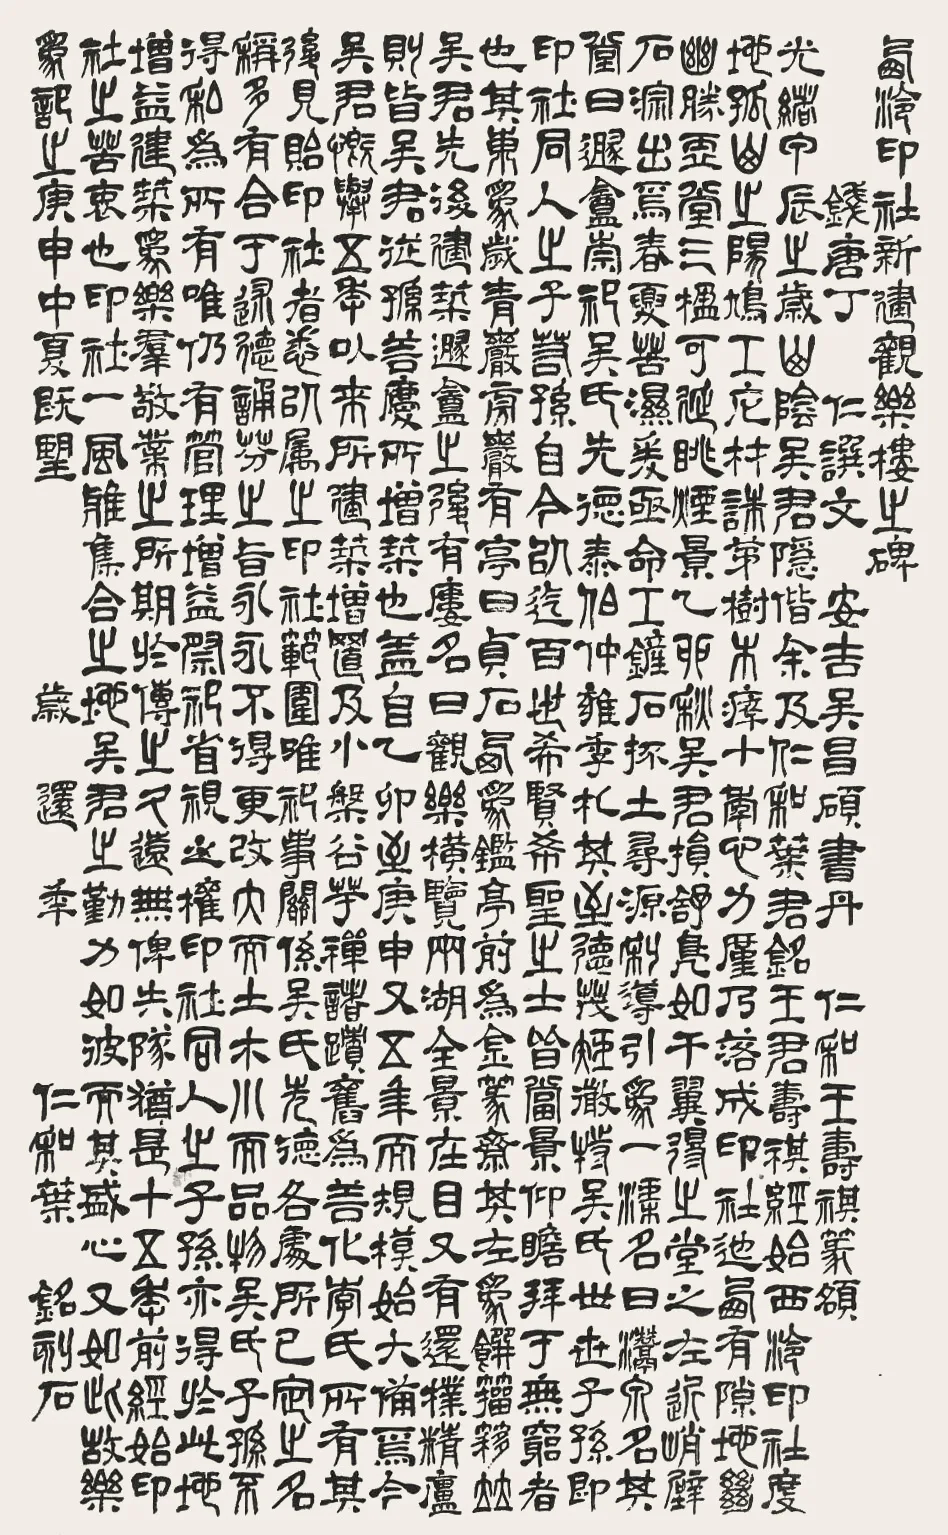 西泠印社新建觀樂樓之碑
錢唐丁 仁譔文 安吉吳昌碩書丹 仁和王壽祺篆額
光緒甲辰之歲山陰吳君隱偕余及仁和葉君銘王君壽祺經始西泠印社度
地孤山之陽鳩工庀材誅茅樹木瘁十年心力廑乃落成印社迆西有隙地茲
幽勝堊堂三楹可延眺煙景乙卯秋吳君損舒鳧如干翼得之堂之左近峭壁
石淙出焉春夏苦濕爰亟命工鏟石捄土尋源利導引爲一湅名曰灊泉名其
堂曰遯盦崇祀吳氏先德泰伯仲雍季札其至德茂矩激揚吳氏世世子孫即
印社同人之子若孫自今以迄百世希賢希聖之士皆當景仰瞻拜于無窮者
也其東爲歲青巖爲巖有亭曰貞石西爲鑑亭前爲金篆齋其左爲饌籀簃竝
吳君先後建築遯盦之後有廔名曰觀樂橫覽兩湖全景在目又有還樸精廬
則皆吳君從孫善慶所增築也盖自乙卯至庚申又五年而規模始大備焉今
吳君慨舉五年以來所建築增置及小盤谷芋禪諸蹟舊爲善化勞氏所有其
後見貽印社者悉以屬之印社範圍唯祀事關係吳氏先德各處所已定之名
稱多有合于述德誦芬之旨永永不得更改大而土木川而品物吳氏子孫不
得私爲所有唯仍有管理增益祭祀省視之權印社同人之子孫亦得於此地
增益建築爲樂羣敬業之所期於傳之久遠無俾失隊猶是十五年前經始印
社之苦衷也印社一風雅集合之地吳君之勤力如彼而其盛心又如此故樂
爲記之庚申中夏既望 歲 還 年 仁和葉 銘刻石